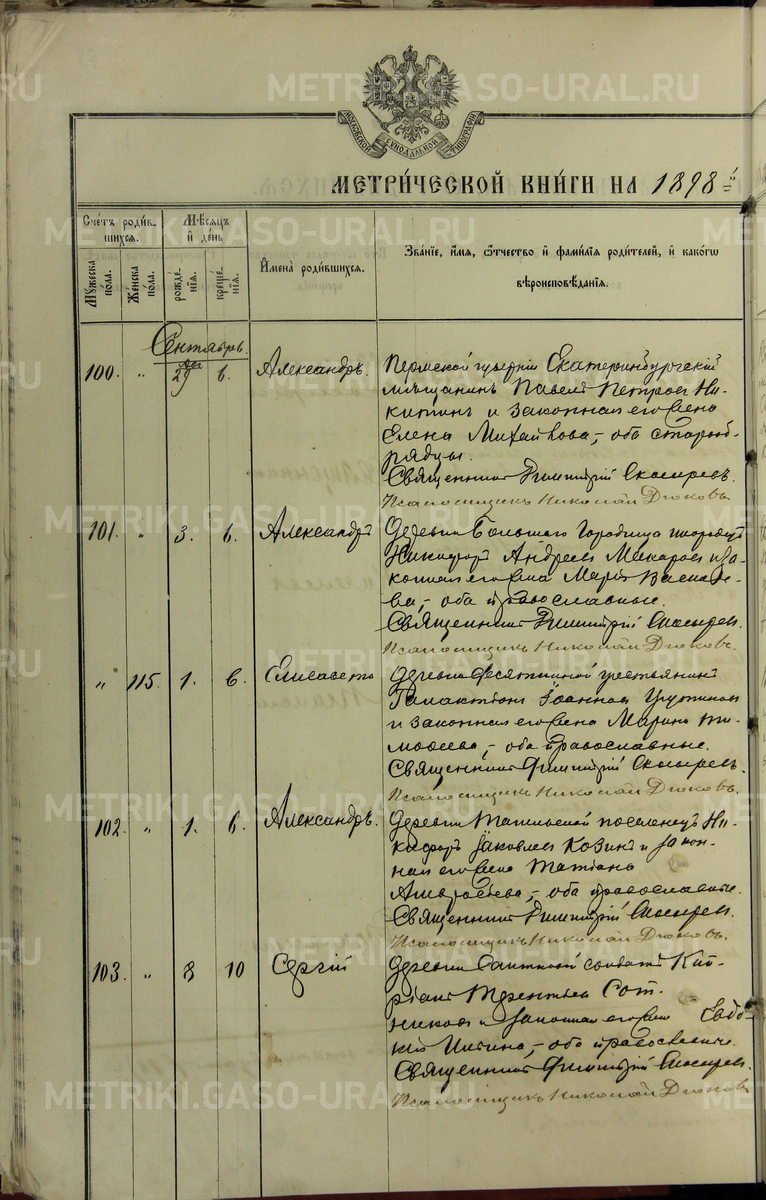 METRIKI.GASO-URAL.RU
МОСКОВСКОЙ СѴНОДАЛЬНОЙ ТИПОГРАФІИ
МЕТРИ́ЧЕСКОЙ КНИ́ГИ НА 1898
Сче́тъ роди́в-
шихся.
Му́жеска по́ла.
Же́нска по́ла.
Мѣ́сяцъ и де́нь
рожде́нія.
креще́нія.
И҆мена̀ роди́вшихся.
Зва́нїе, и҆́мя, ѻ҆́тчество и҆ фами́лїя роди́телей, и҆ како́гѡ
вѣроисповѣ́данїя.
Сентябрь
100. " Авг 29 6. Александръ. Пермской губерніи Екатеринбургскій
мѣщанинъ Павелъ Петровъ Ни-
китинъ и законная его жена
Елена Михайлова, – оба старооб-
рядцы.
Священникъ Димитрій Скосыревъ.
Псаломщикъ Николай Дюковъ.
101. " 3. 6. Александръ Деревни Большого Городища инородецъ
Никифоръ Андреевъ Макаровъ и за-
конная его жена Марія Василье-
ва, – оба православные.
Священникъ Димитрій Скосыревъ.
Псаломщикъ Николай Дюковъ.
" 115. 1. 6. Елисавета Деревни крестьянинъ
Галактіонъ Іоанновъ
и законная его жена Марина Ти-
моѳеева, – оба православные.
Священникъ Димитрій Скосыревъ.
Псаломщикъ Николай Дюковъ.
102. " 1. 6. Александръ. Деревни поселенецъ Ни-
кифоръ Іаковлевъ Козинъ и закон-
ная его жена Татіана
Амвросіева, – оба православные.
Священникъ Димитрій Скосыревъ.
Псаломщикъ Николай Дюковъ.
103. " 8 10 Сергій Деревни солдатъ Кип-
ріанъ Терентьевъ Сот-
никовъ и законная его жена Евдо-
кія – оба православные.
Священникъ Димитрій Скосыревъ.
Псаломщикъ Николай Дюковъ.